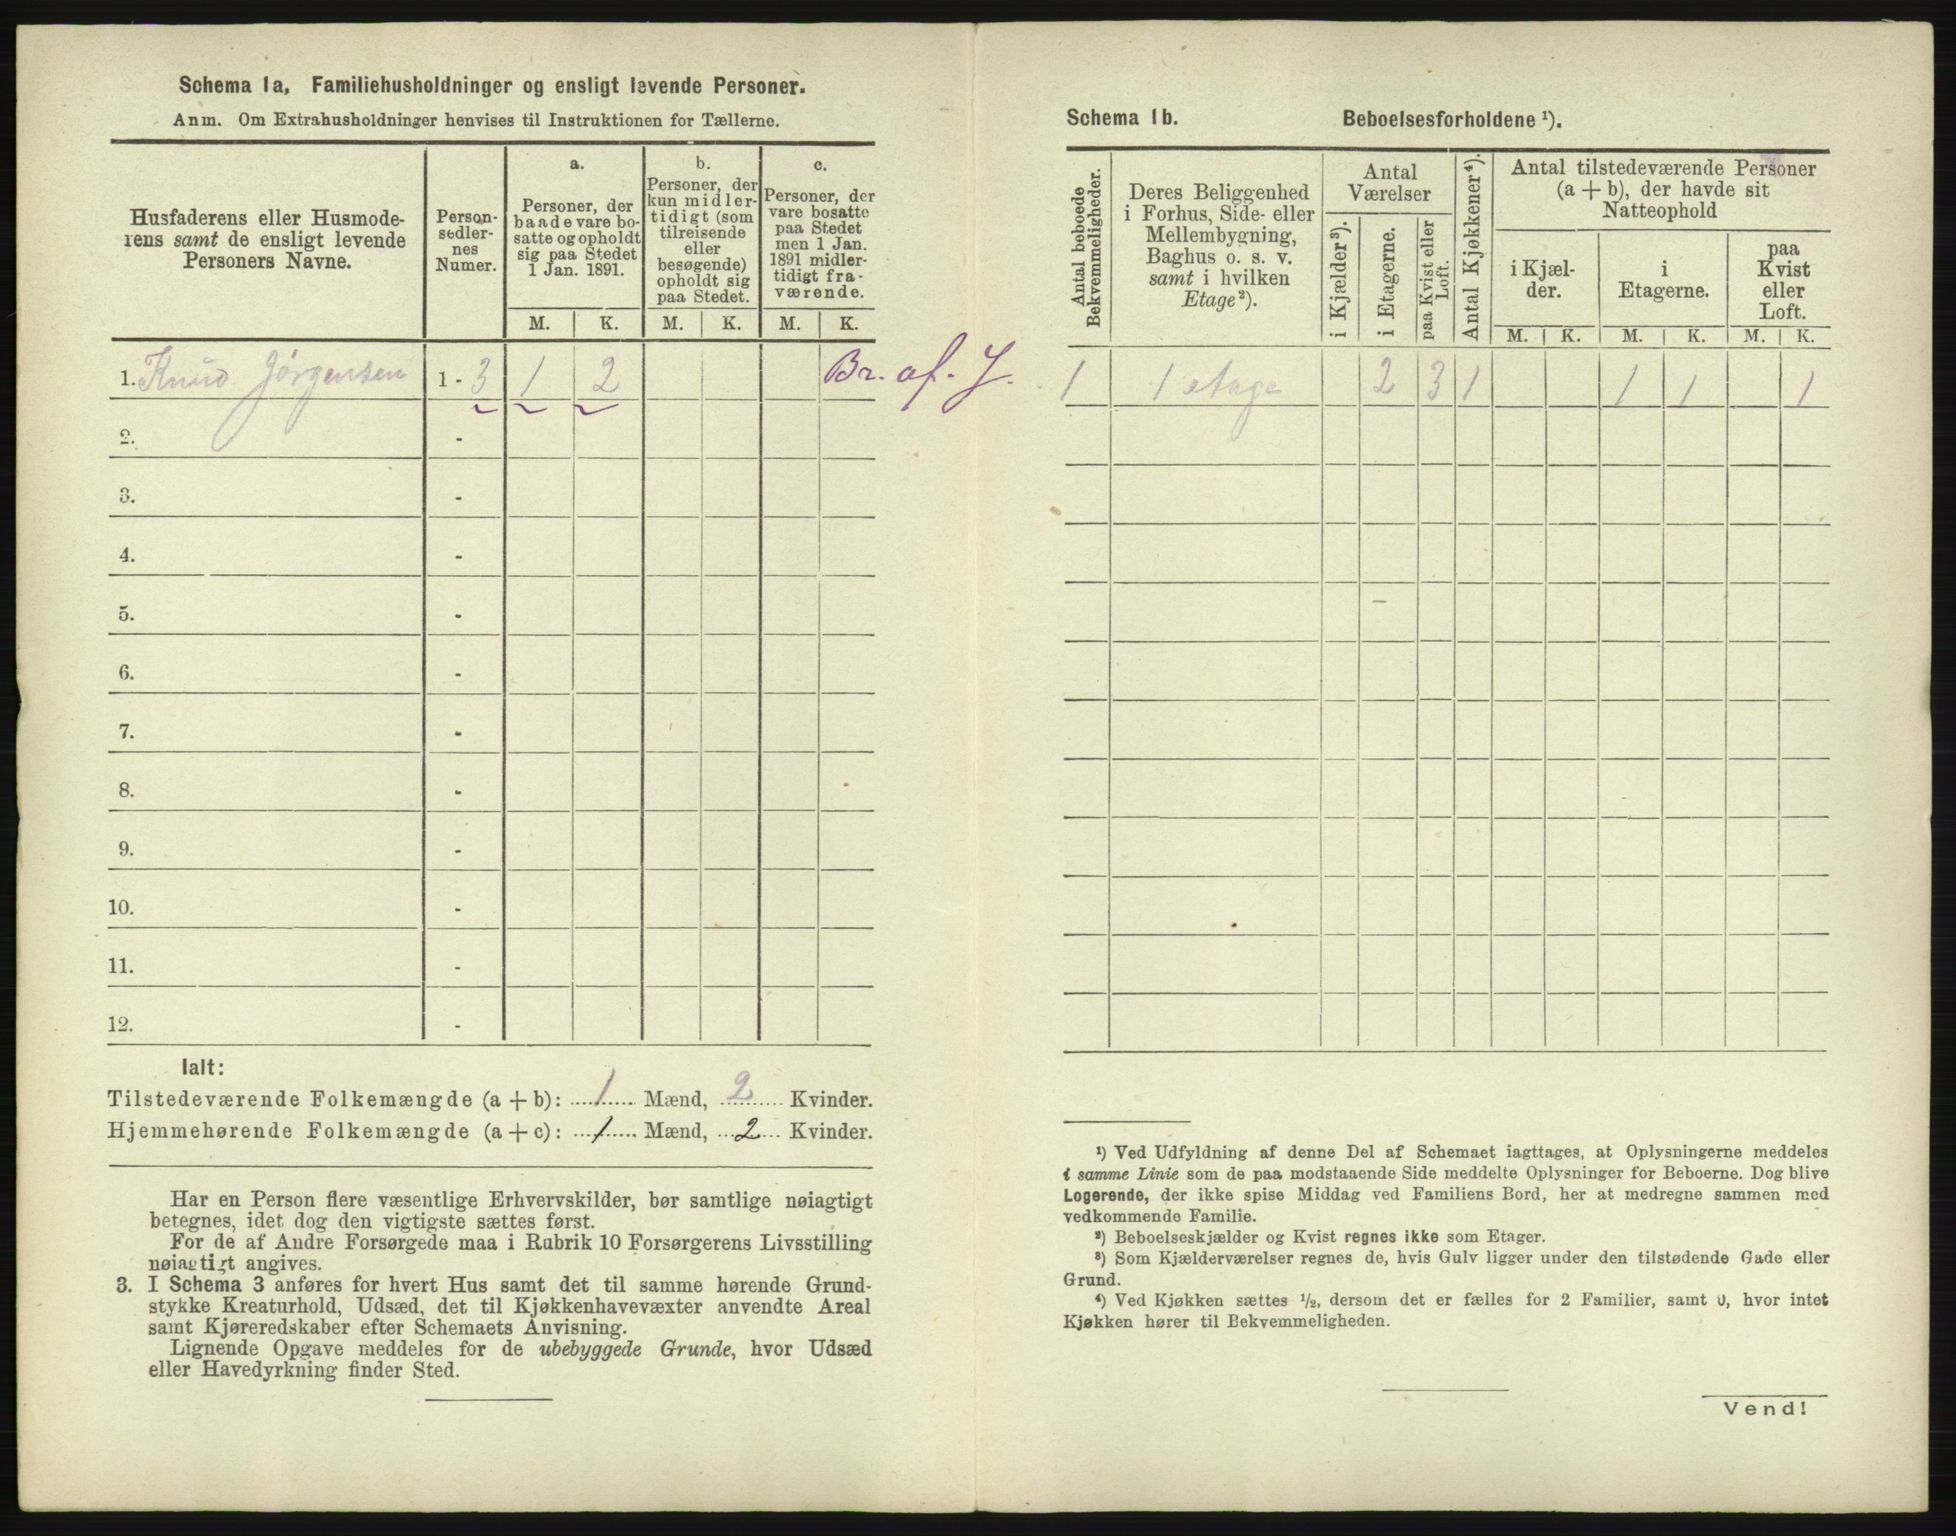 Schema 1a. Familiehusholdninger og ensligt levende Personer.
Anm. Om Extrahusholdninger henvises til Instruktionen for Tællerne.
Husfaderens eller Husmode-
rens samt de ensligt levende
Personers Navne.
Person-
sedler-
nes
Numer.
a.
Personer, der
baade vare bo-
satte og opholdt
sig paa Stedet
1 Jan. 1891.
b.
Personer, der
kun midler-
tidigt (som
tilreisende
eller
besøgende)
opholdt sig
paa Stedet.
c.
Personer, der
vare bosatte
paa Stedet
men 1 Jan.
1891 midler-
tidigt fra-
værende.
M. K. M. K. M. K.
1. Knud Jörgensen 1 - 3 1 2 Br. af. J.
2. -
3. -
4. -
5. -
6. -
7. -
8. -
9. -
10. -
11. -
12. -
Ialt:
Tilstedeværende Folkemængde (a + b): 1 Mænd, 2 Kvinder.
Hjemmehørende Folkemængde (a + c): 1 Mænd, 2 Kvinder.
Har en Person flere væsentlige Erhvervskilder, bør samtlige nøiagtigt
betegnes, idet dog den vigtigste sættes først.
For de af Andre Forsørgede maa i Rubrik 10 Forsørgerens Livsstilling
nøiagtigt angives.
3. I Schema 3 anføres for hvert Hus samt det til samme hørende Grund-
stykke Kreaturhold, Udsæd, det til Kjøkkenhavevæxter anvendte Areal
samt Kjøreredskaber efter Schemaets Anvisning.
Lignende Opgave meddeles for de ubebyggede Grunde, hvor Udsæd
eller Havedyrkning finder Sted.
Schema 1b. Beboelsesforholdene ¹).
Antal beboede
Bekvemmeligheder.
Deres Beliggenhed
i Forhus, Side- eller
Mellembygning,
Baghus o. s. v.
samt i hvilken
Etage ²).
Antal
Værelser
i Kjælder ³).
i Etagerne.
paa Kvist eller
Loft.
Antal Kjøkkener ⁴).
Antal tilstedeværende Personer
(a + b), der havde sit
Natteophold
i Kjæl-
der.
i
Etagerne.
paa
Kvist
eller
Loft.
M. K. M. K. M. K.
1 1 etage 2 3 1 1 1 1
¹) Ved Udfyldning af denne Del af Schemaet iagttages, at Oplysningerne meddeles
i samme Linie som de paa modstaaende Side meddelte Oplysninger for Beboerne. Dog blive
Logerende, der ikke spise Middag ved Familiens Bord, her at medregne sammen med
vedkommende Familie.
²) Beboelseskjælder og Kvist regnes ikke som Etager.
³) Som Kjælderværelser regnes de, hvis Gulv ligger under den tilstødende Gade eller
Grund.
⁴) Ved Kjøkken sættes ½, dersom det er fælles for 2 Familier, samt 0, hvor intet
Kjøkken hører til Bekvemmeligheden.
Vend!